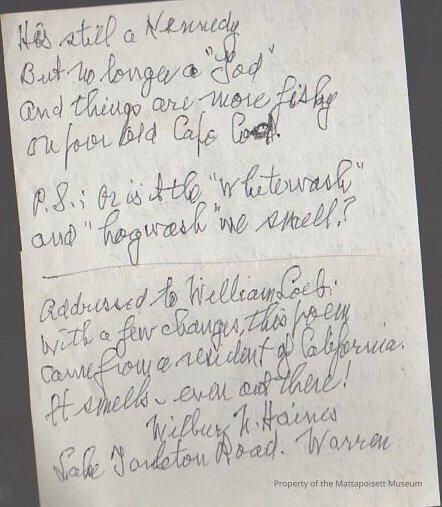 He's still a Kennedy
But no longer a "God"
And things are more fishy
On poor old Cape Cod.
P.S.; Or is it the "whitewash"
and "hogwash" we smell?
Addressed to William Loeb:
With a few changes, this poem
came from a resident of California.
It smells - even out there!
Wilbur N. Haines
Lake Tarleton Road. Warren
Property of the Mattapoisett Museum